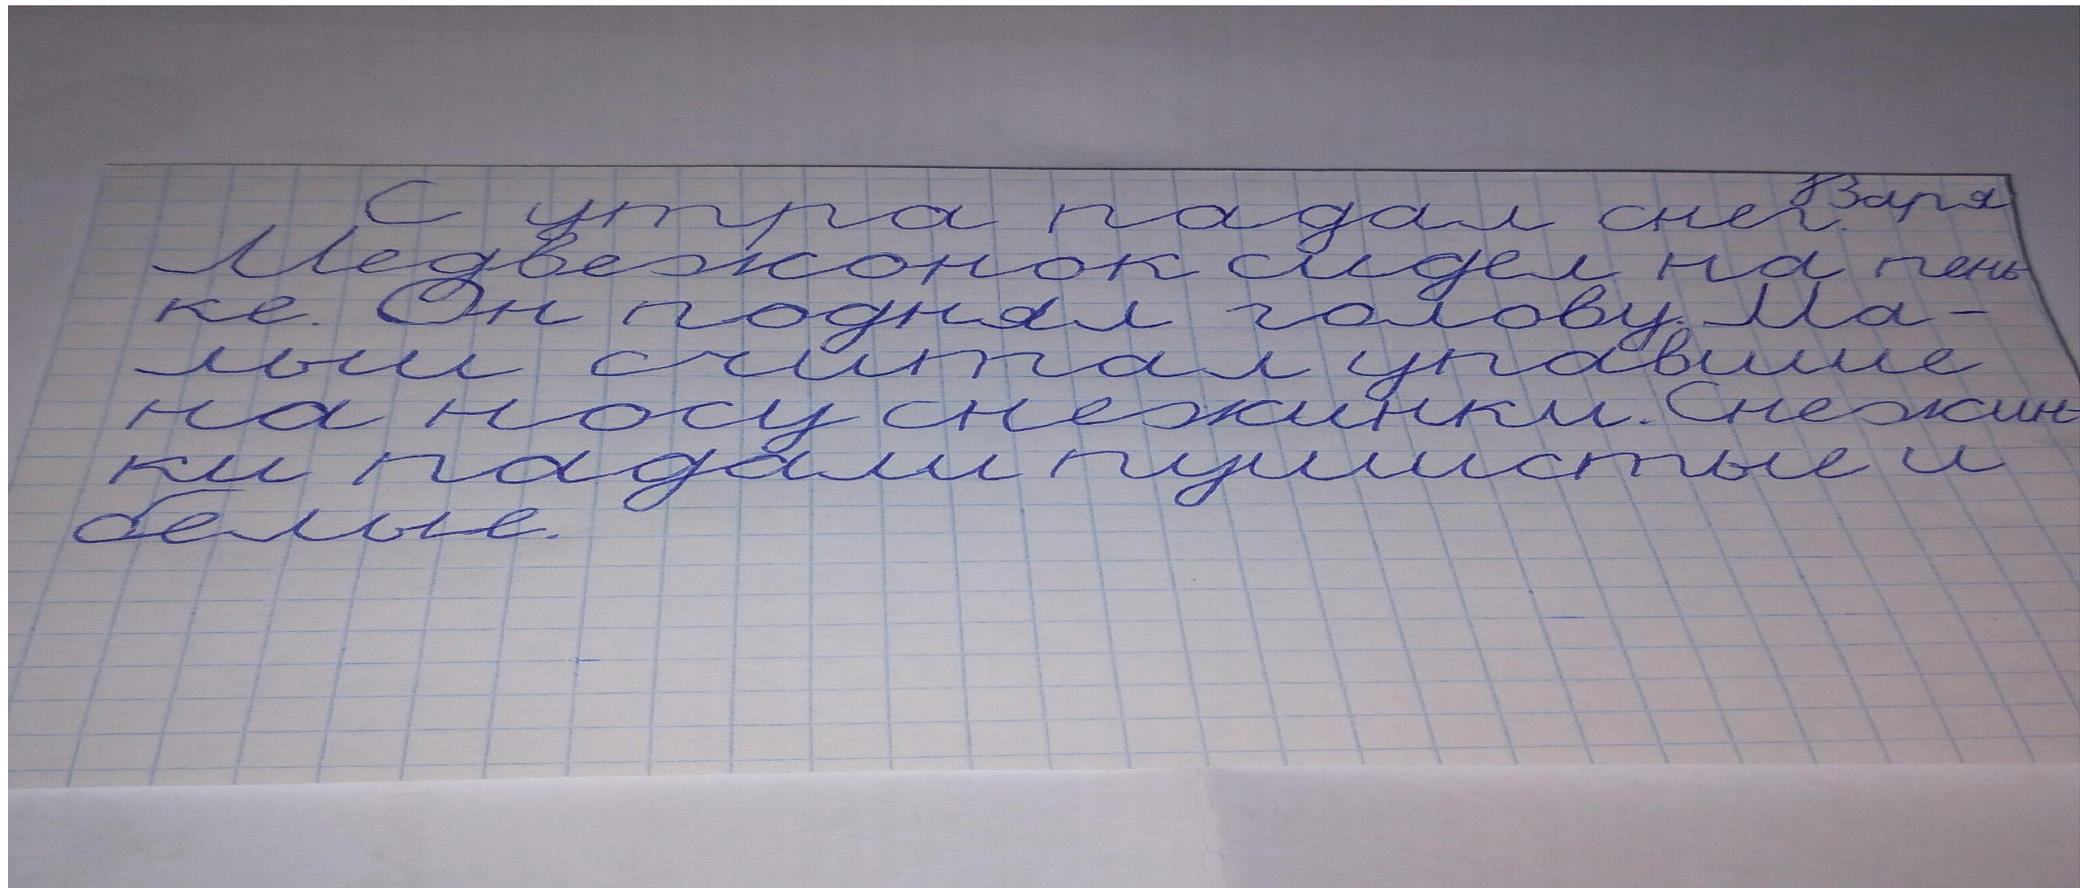 Варя
С утра падал снег.
Медвежонок сидел на пень
ке. Он поднял голову. Ма-
лыш считал упавшие
на носу снежинки. Снежин-
ки падали пушистые и
белые.